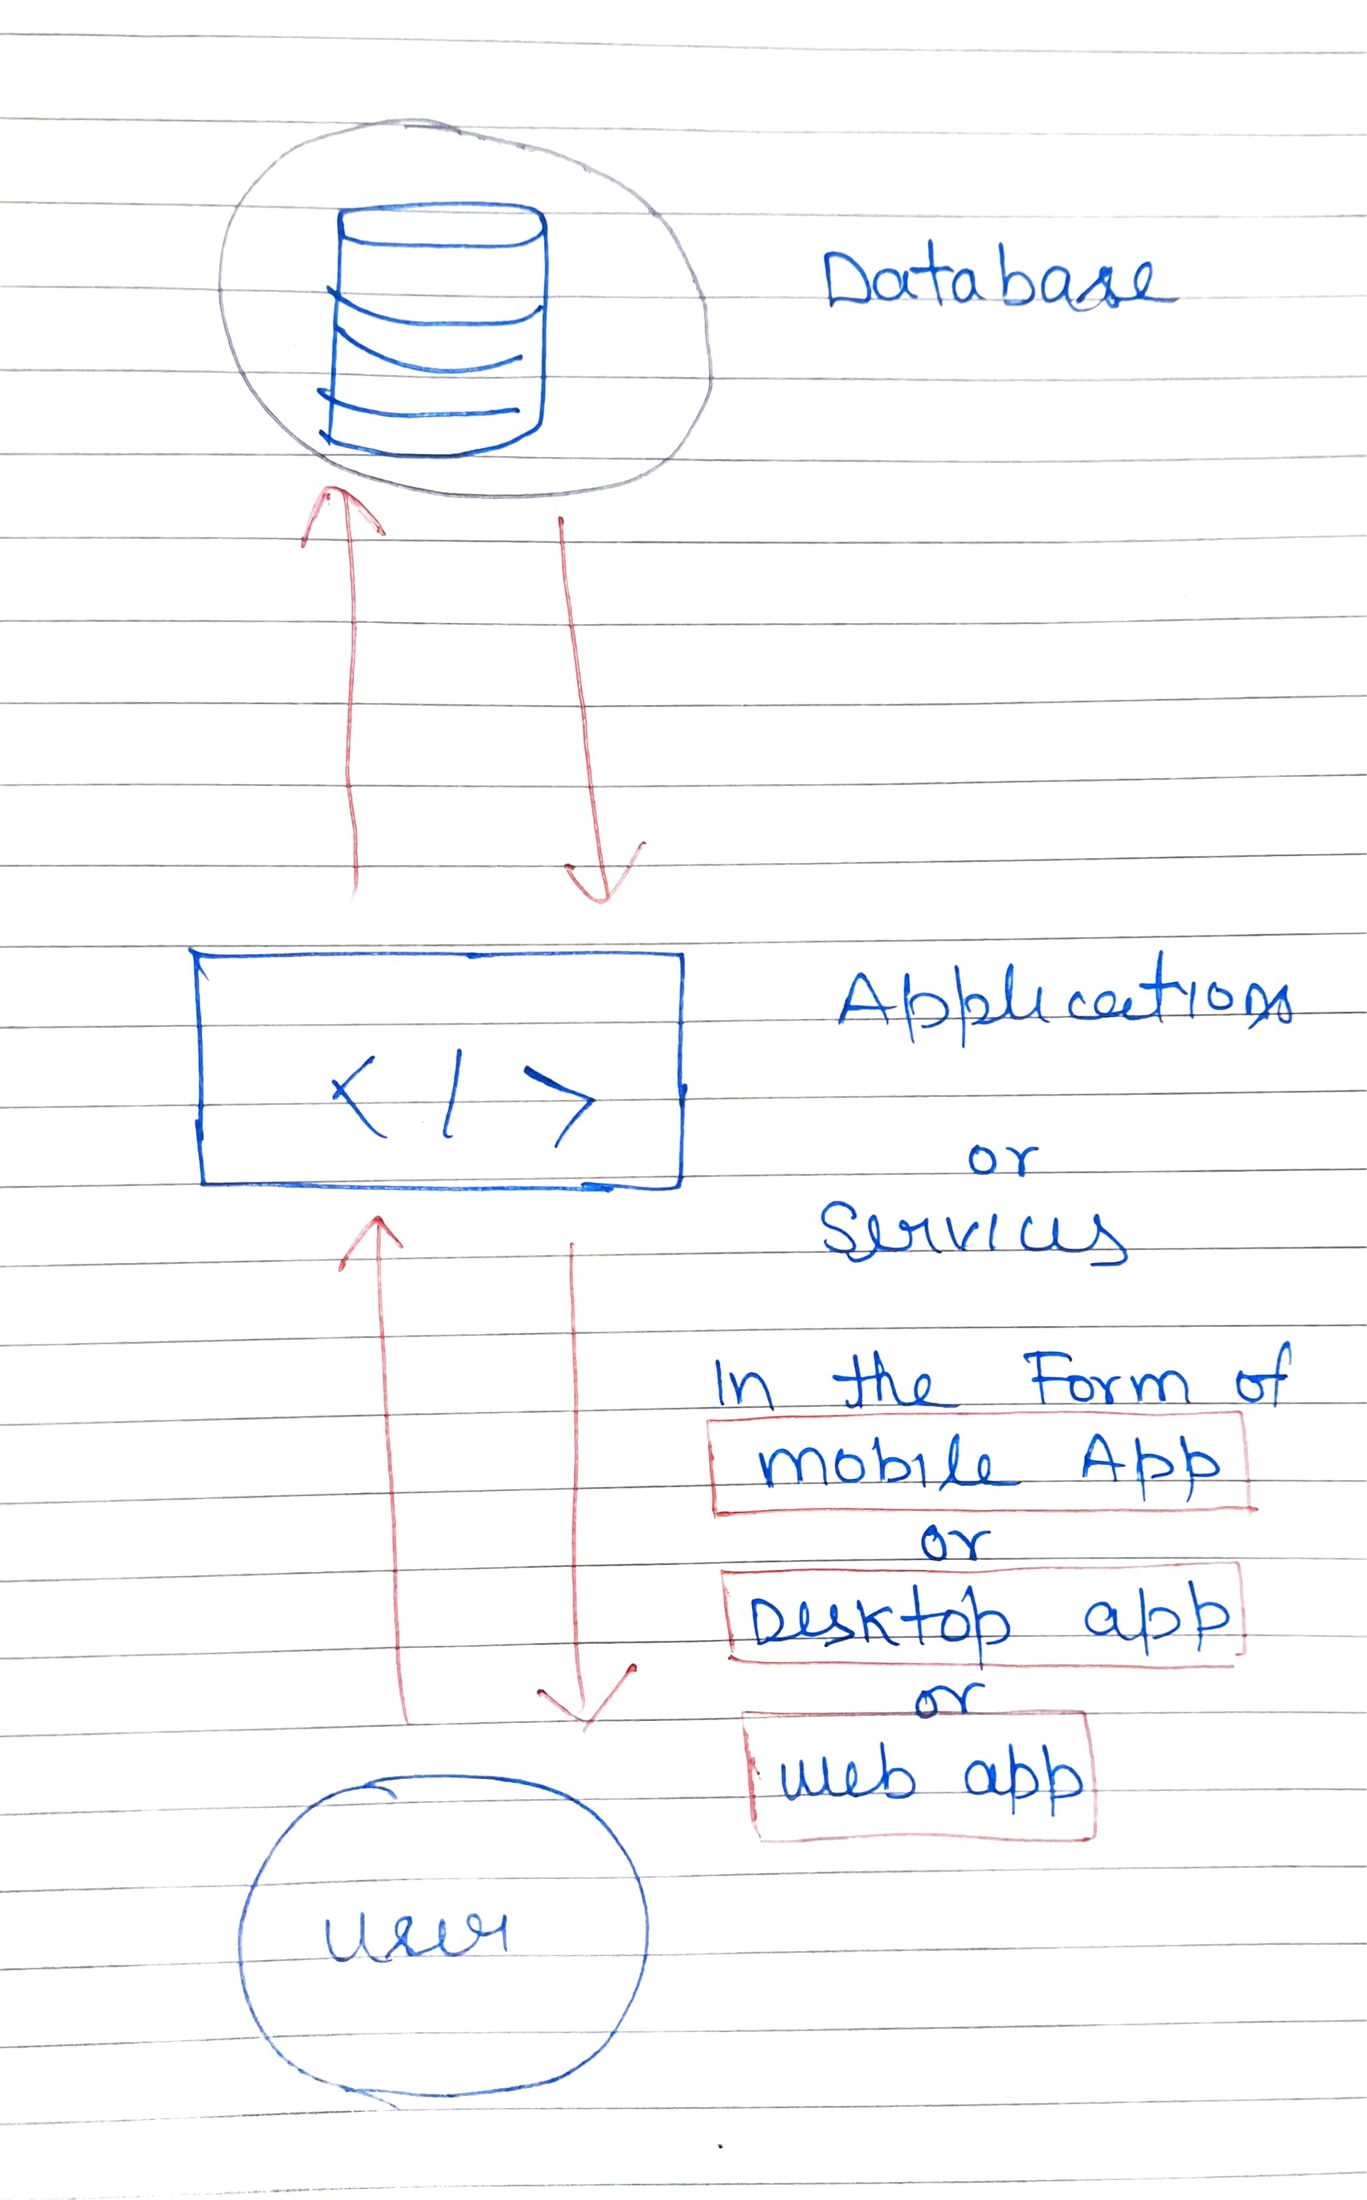 Database
</>
Applications
or
Services
In the Form of
mobile App
or
Desktop app
or
web app
user